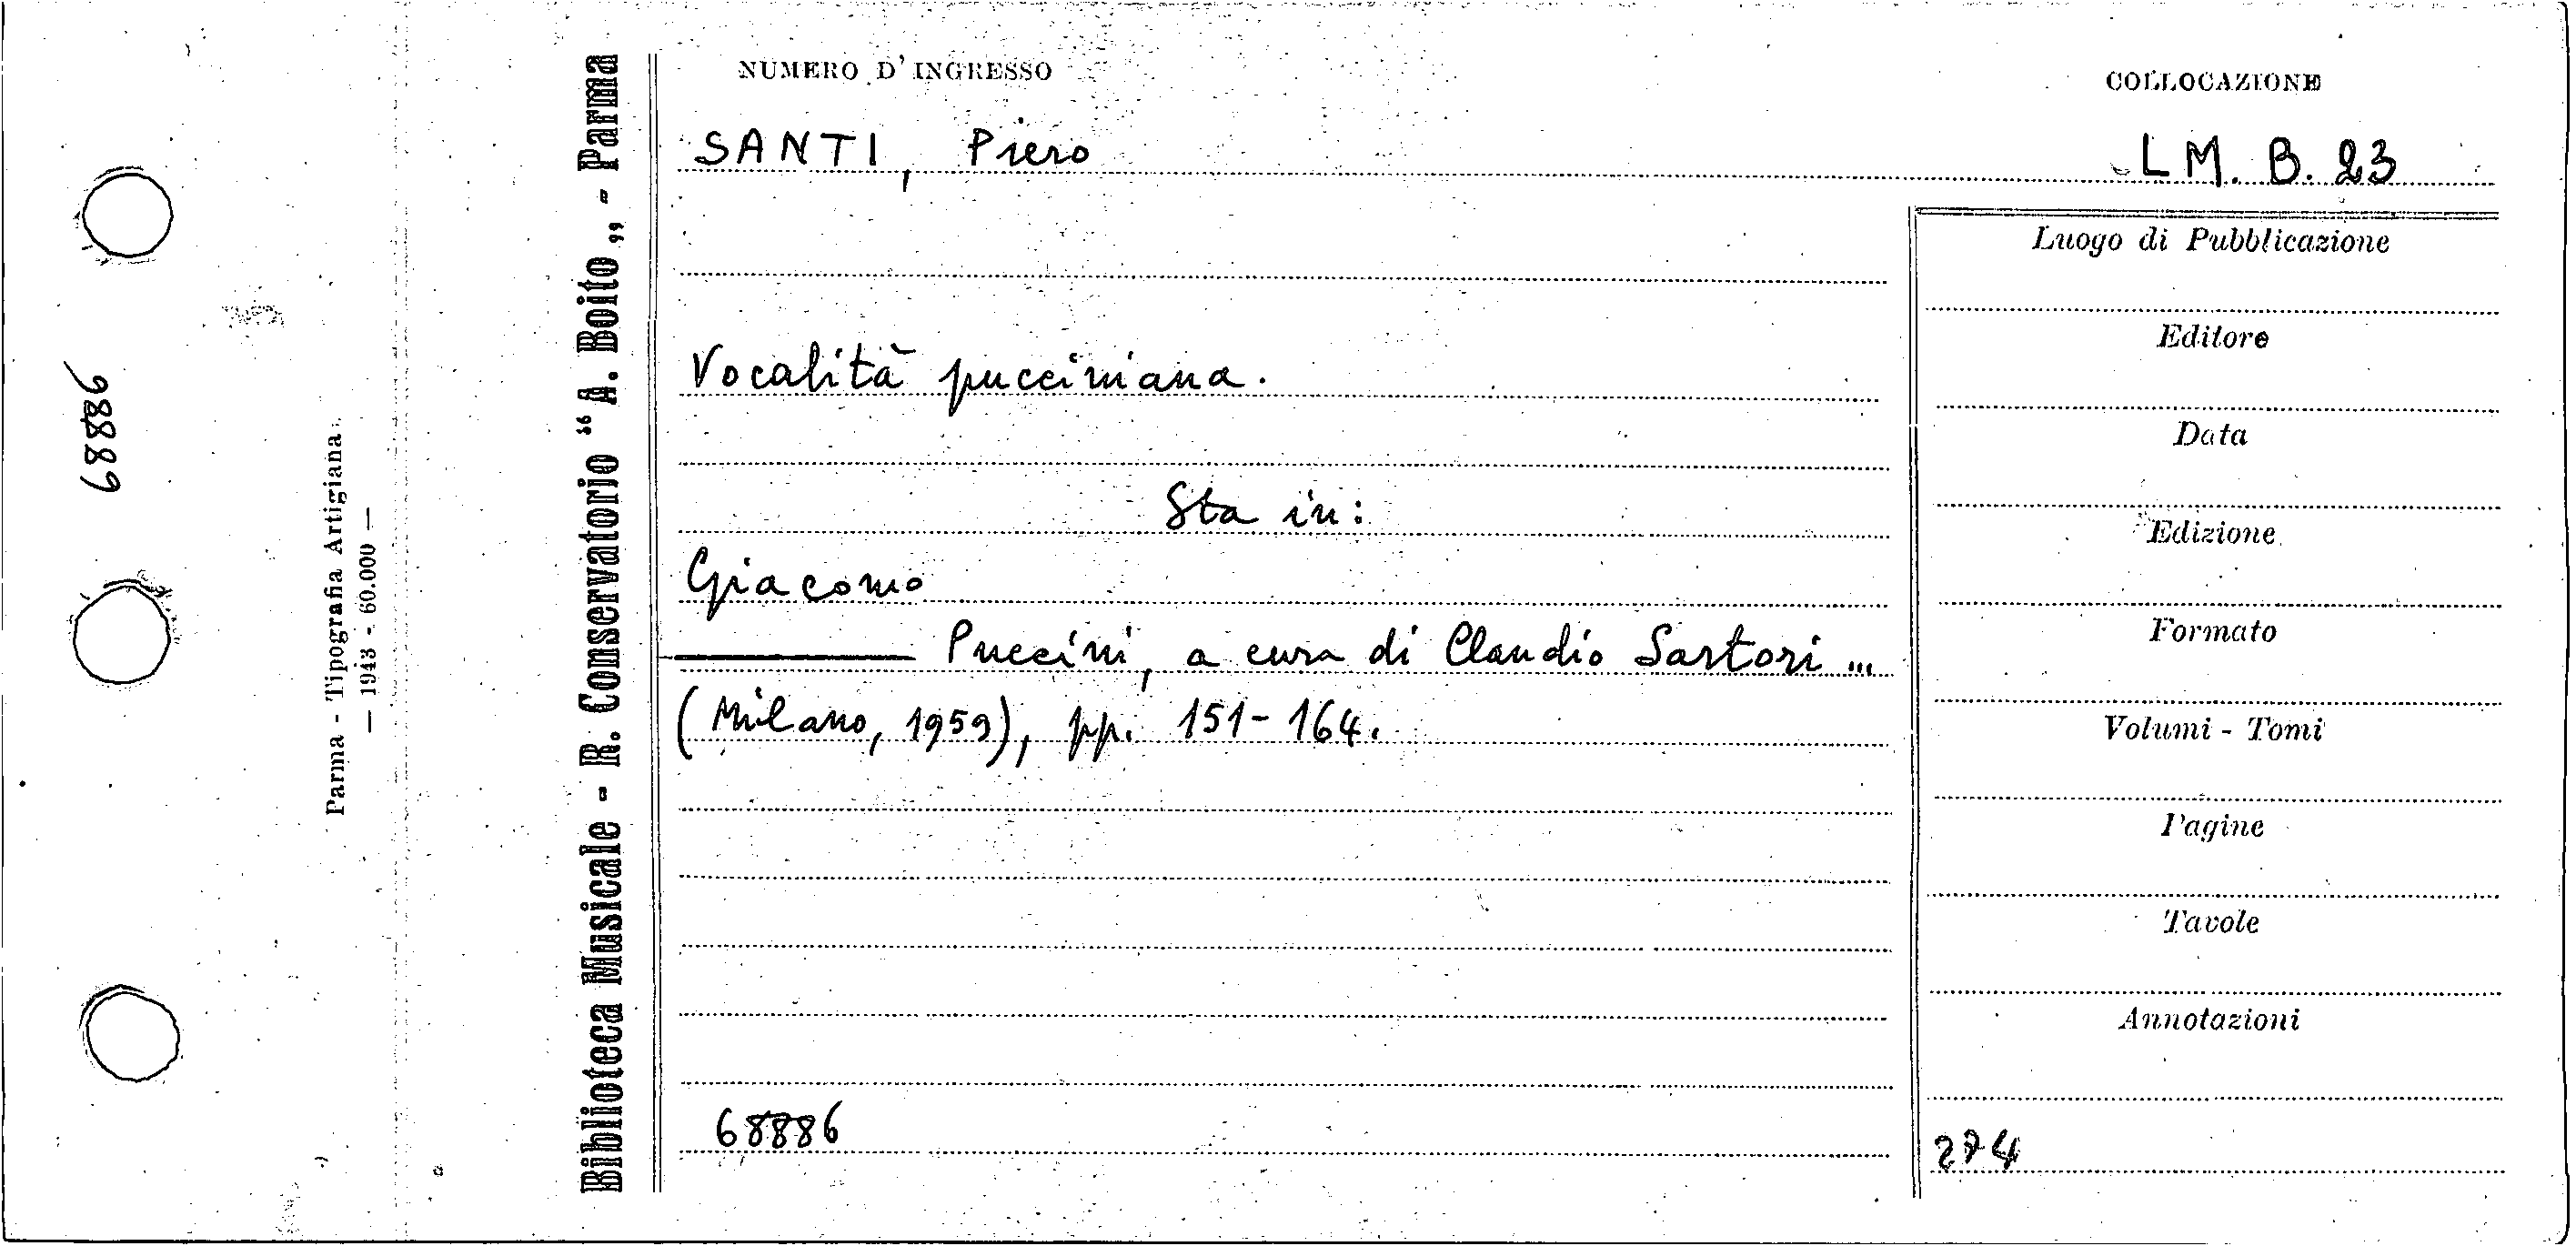 NUMERO D'INGRESSO
COLLOCAZIONE
SANTI, Piero
LM. B. 23
Vocalità pucciniana.
Sta in:
Giacomo
Puccini, a cura di Claudio Sartori ...
(Milano, 1959), pp. 151-164.
68886
Luogo di Pubblicazione
Editore
Data
Edizione
Formato
Volumi - Tomi
Pagine
Tavole
Annotazioni
274
Biblioteca Musicale - R. Conservatorio “A. Boito„ - Parma
Parma - Tipografia Artigiana
— 1943 - 60.000 —